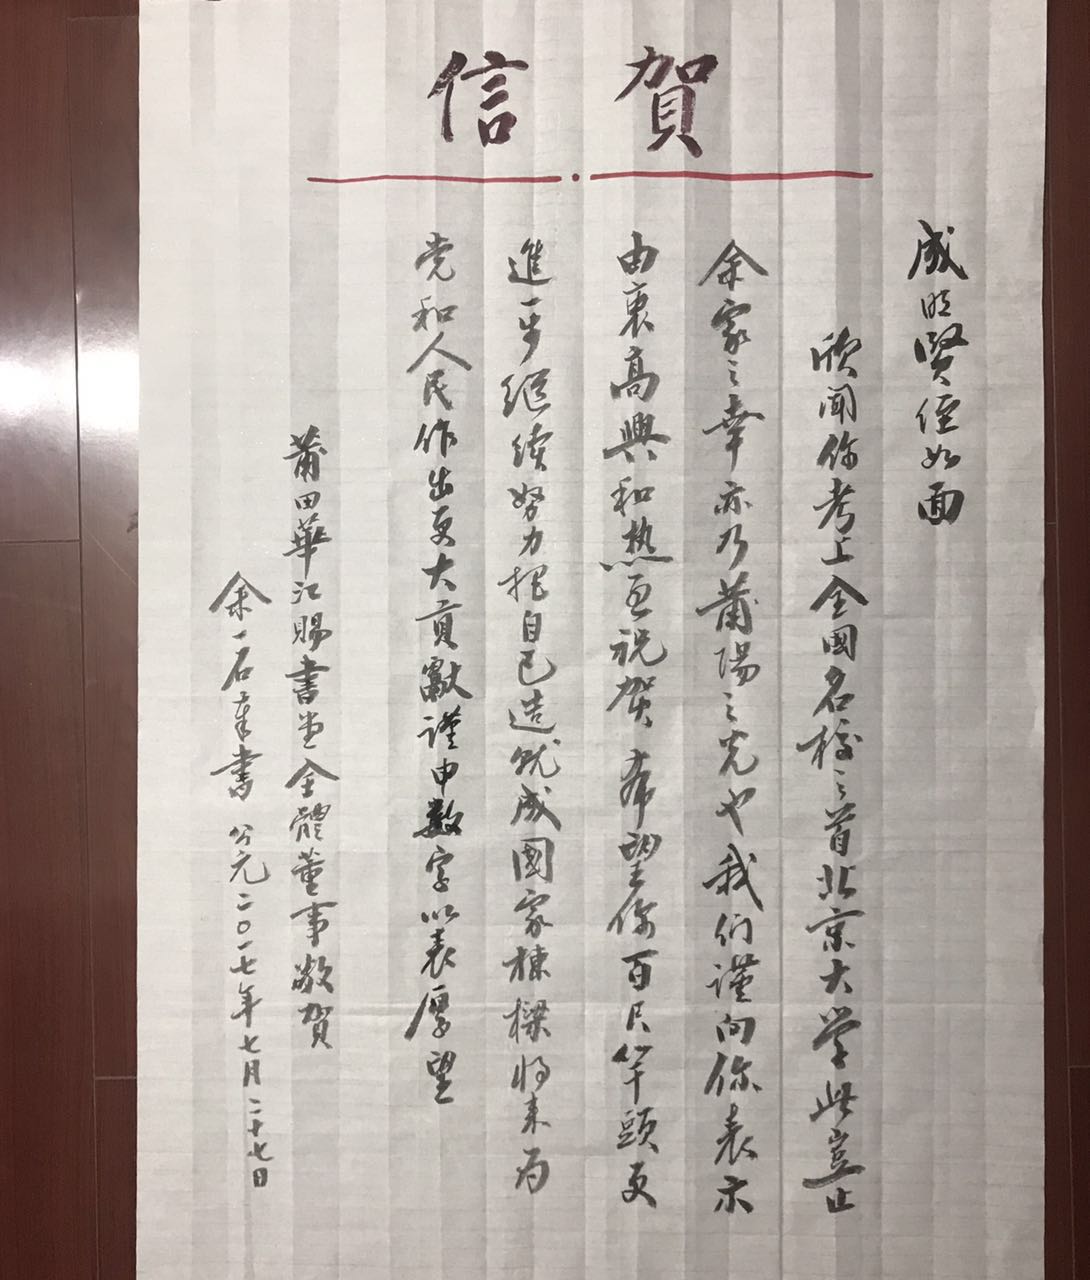 賀信
成旺賢侄如面
欣聞你考上全國名校之首北京大学此豈止
余家之幸亦乃莆陽之光也我们謹向你表示
由衷高興和热烈祝贺希望你百尺竿頭更
進一步继续努力把自己造就成國家棟樑将来为
党和人民作出更大貢獻謹申数字以表厚望
莆田華江賜書堂全體董事敬賀
余一石奉書 公元二〇一七年七月二十七日